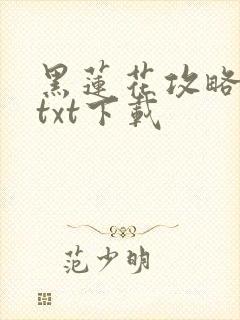 黑蓮花攻略
txt下載
范少明